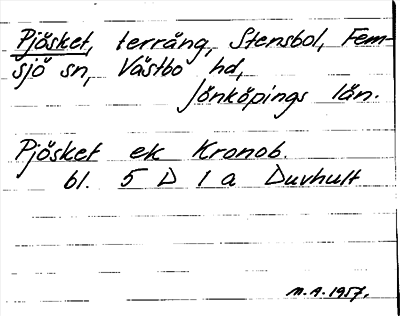 Pjösket, terräng, Stensbol, Fem-
sjö sn, Västbo hd,
Jönköpings län.
Pjösket ek Kronob.
bl. 5 D 1 a Duvhult
M.A. 1957.